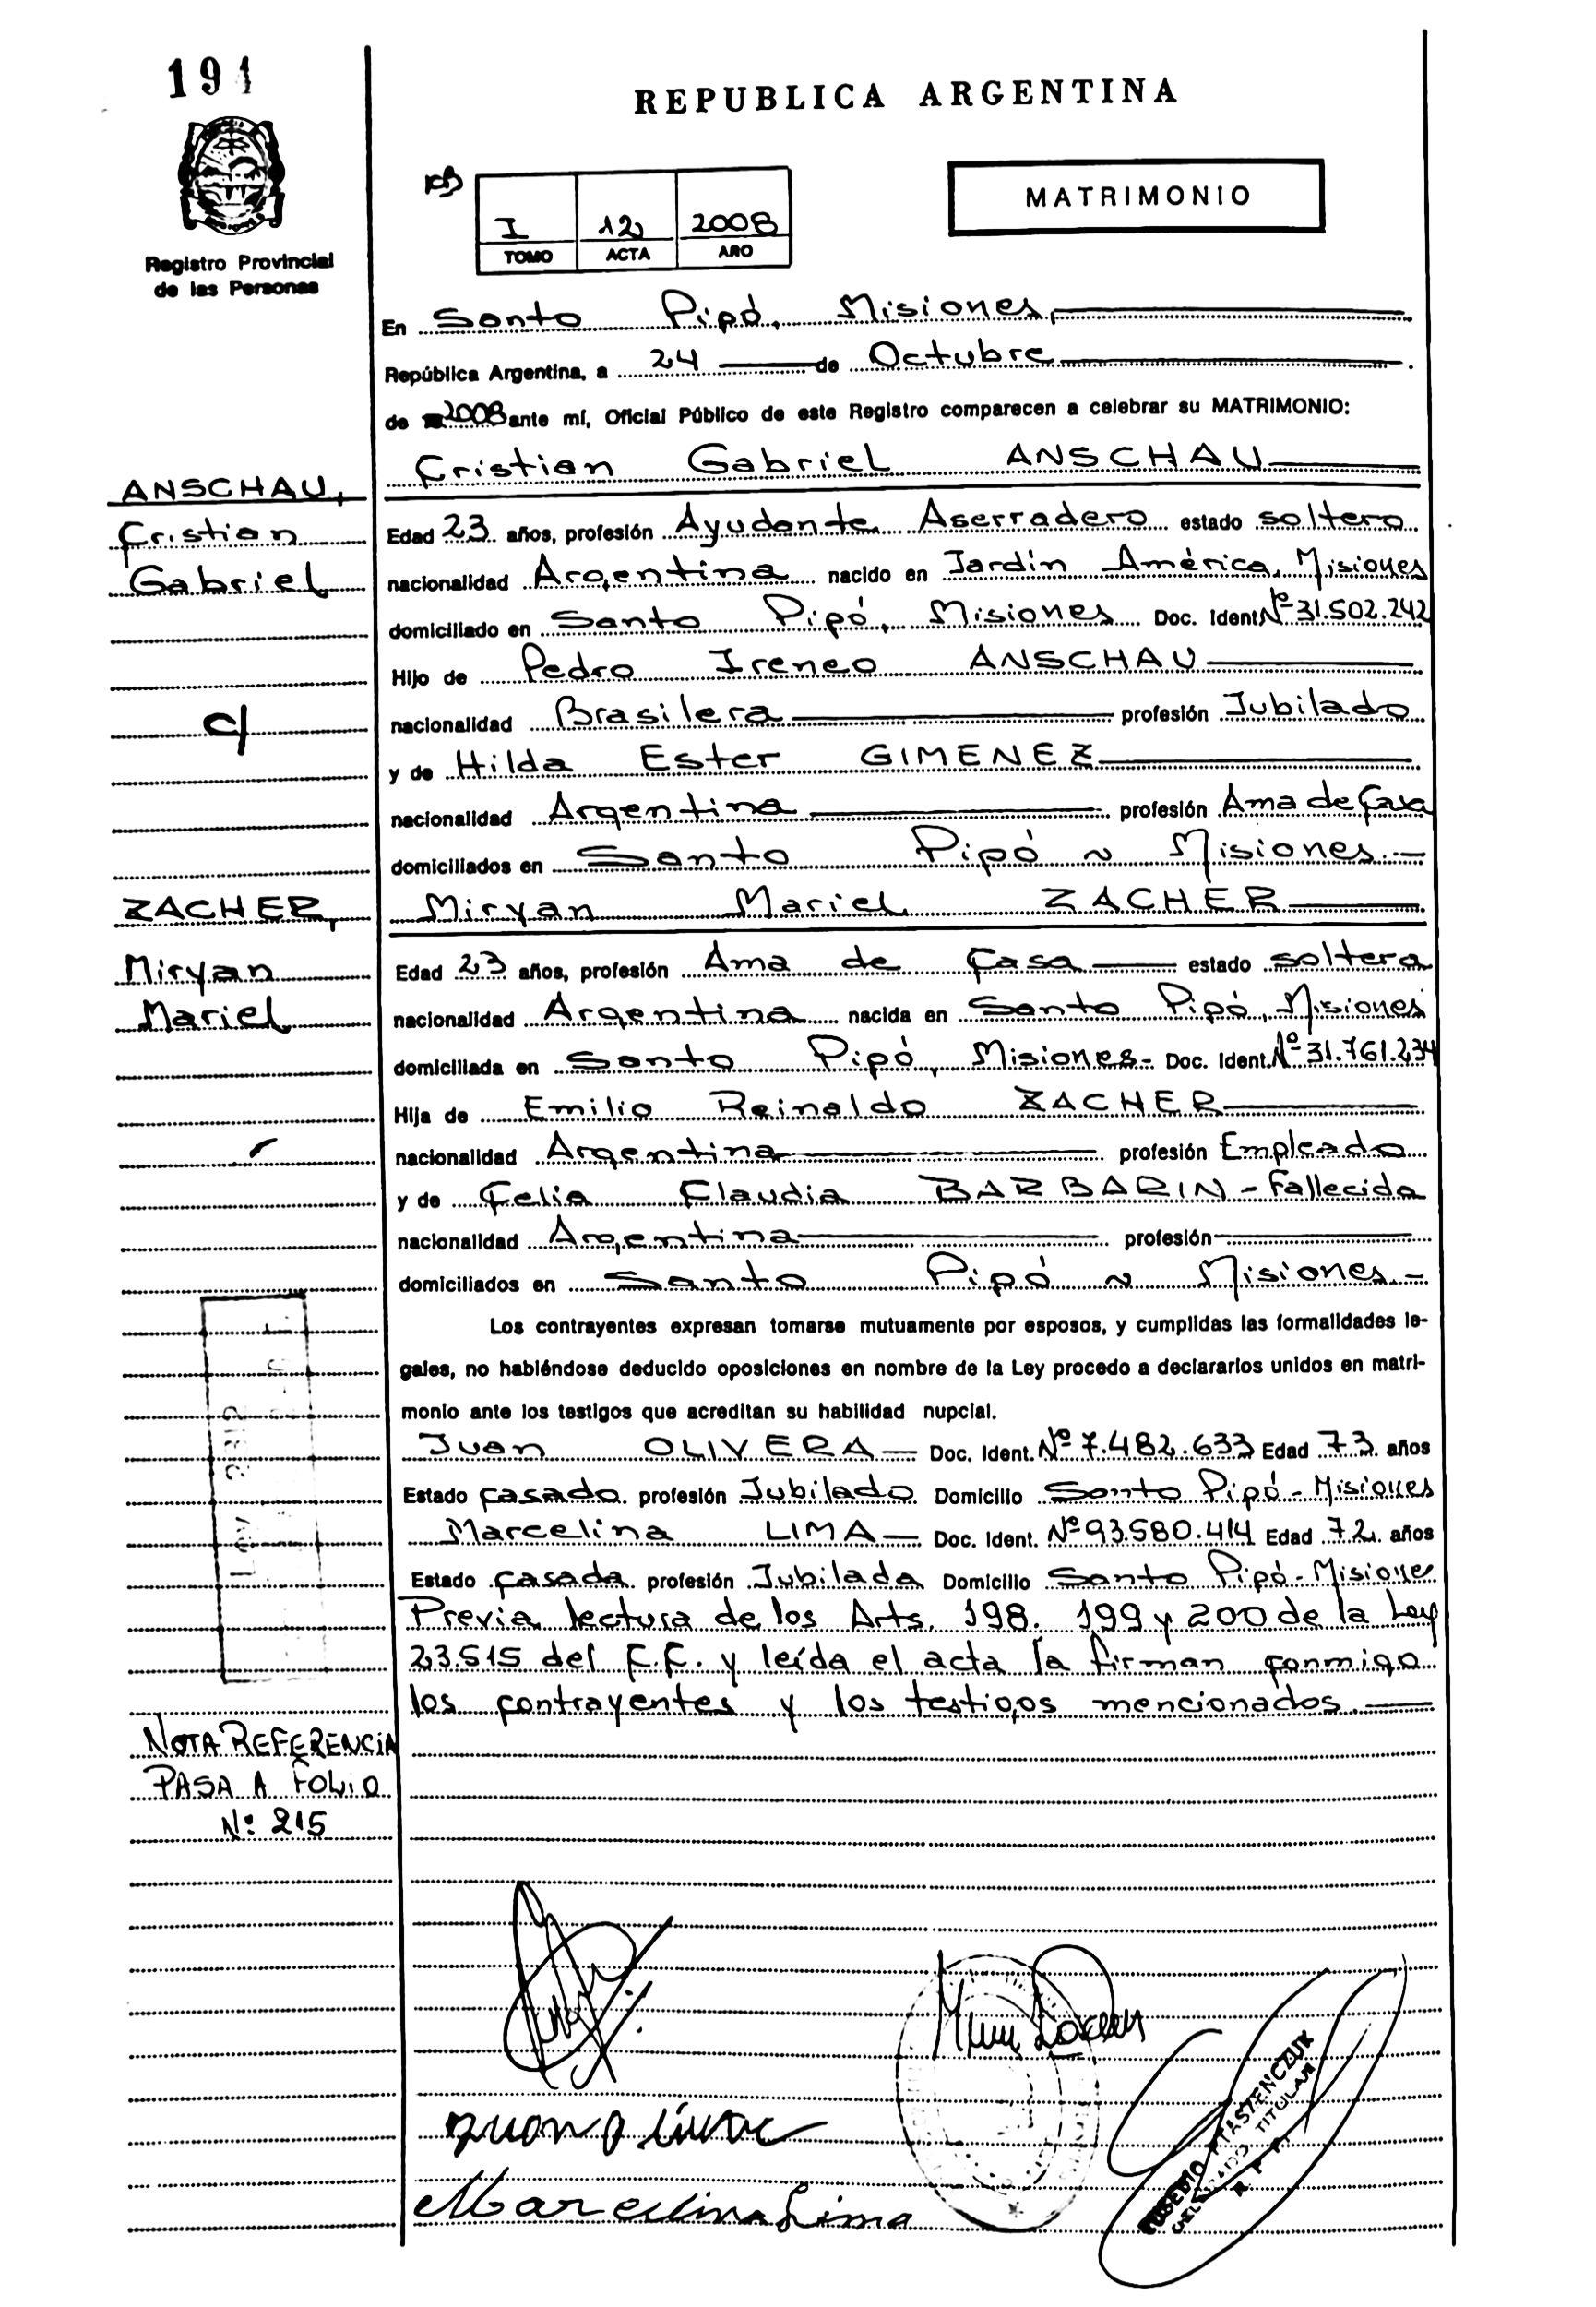 191
REPUBLICA ARGENTINA
MATRIMONIO
I 12 2008
TOMO ACTA AÑO
Registro Provincial
de las Personas
En Santo Pipó, Misiones,
República Argentina, a 24 de Octubre
de 2008 ante mí, Oficial Público de este Registro comparecen a celebrar su MATRIMONIO:
Cristian Gabriel ANSCHAU
ANSCHAU,
Cristian
Gabriel
Edad 23 años, profesión Ayudante Aserradero estado soltero
nacionalidad Argentina nacido en Jardín América, Misiones
domiciliado en Santo Pipó, Misiones Doc. Ident Nº 31.502.242
Hijo de Pedro Ireneo ANSCHAU
c/
nacionalidad Brasilera profesión Jubilado
y de Hilda Ester GIMENEZ
nacionalidad Argentina profesión Ama de Casa
domiciliados en Santo Pipó ~ Misiones.-
ZACHER,
Miryan
Mariel
Miryan Mariel ZACHER
Edad 23 años, profesión Ama de Casa estado soltera
nacionalidad Argentina nacida en Santo Pipó, Misiones
domiciliada en Santo Pipó, Misiones- Doc. Ident. Nº 31.761.234
Hija de Emilio Reinaldo ZACHER
nacionalidad Argentina profesión Empleado
y de Celia Claudia BARBARIN - Fallecida
nacionalidad Argentina profesión
domiciliados en Santo Pipó ~ Misiones.-
Los contrayentes expresan tomarse mutuamente por esposos, y cumplidas las formalidades le-
gales, no habiéndose deducido oposiciones en nombre de la Ley procedo a declararlos unidos en matri-
monio ante los testigos que acreditan su habilidad nupcial.
Juan OLIVERA Doc. Ident. Nº 7.482.633 Edad 73 años
Estado Casado profesión Jubilado Domicilio Santo Pipó - Misiones
Marcelina LIMA Doc. Ident. Nº 93.580.414 Edad 72 años
Estado Casada profesión Jubilada Domicilio Santo Pipó - Misiones
Previa lectura de los Arts. 198. 199 y 200 de la Ley
23.515 del C.C. y leída el acta la firman conmigo
los contrayentes y los testigos mencionados.
NOTA REFERENCIA
PASA A FOLIO
Nº 215
Juan Oliver
Marcelina Lima
EUSEBIO PTASTENCZUK
DELEGADO TITULAR
R. P. P.